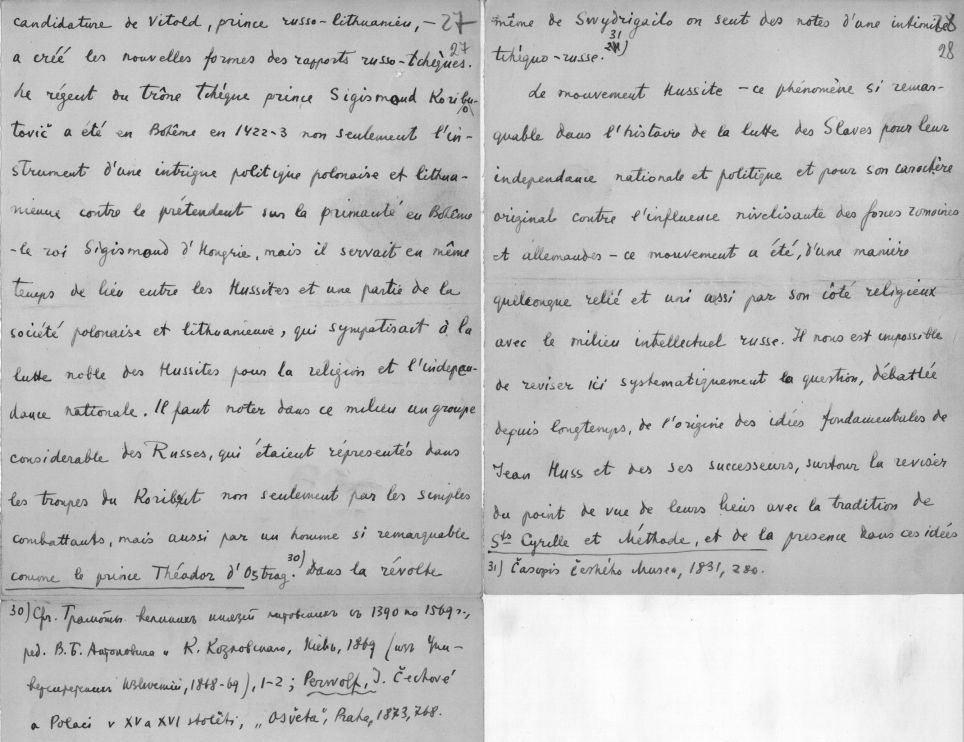 candidature de Vitold, prince russo-lithuanien, – 27
27
a créé les nouvelles formes des rapports russo-tchèques.
Le régent du trône tchéque prince Sigismond Koribu-
tovič a été en Bohême en 1422-3 non seulement l'in-
strument d'une intrigue politique polonaise et lithua-
nienne contre le prétendent sur la primauté en Bohême
-le roi Sigismond d'Hongrie, mais il servait en même
temps de lien entre les Hussites et une partie de la
société polonaise et lithuanienne, qui sympatisait à la
lutte noble des Hussites pour la religion et l'indepen-
dance nationale. Il faut noter dans ce milieu un groupe
considerable des Russes, qui étaient répresentés dans
les troupes du Koribut non seulement par les simples
combattants, mais aussi par un homme si remarquable
comme le prince Théodor d'Ostrog.30) Dans la révolte
30) Cfr. Грамоты великих князей литовских съ 1390 по 1569 г.,
ред. В.Б. Антоновича и К. Козловского, Кіевъ, 1869 (изъ Уни-
верситетских Извѣстий, 1868-69), 1-2; Perwolf, J. Čechové
a Polaci v XV a XVI stoliti, „Osvěta", Praha, 1873, 768.
même de Swydrigailo on sent des notes d'une intimité 28
28
tchéquo-russe.31)
Le mouvement Hussite – ce phénomène si remar-
quable dans l'histoire de la lutte des Slaves pour leur
independance nationale et politique et pour son caractère
original contre l'influence nivelisante des forses romaines
et allemandes – ce mouvement a été, d'une manière
quelconque relié et uni aussi par son côté religieux
avec le milieu intellectuel russe. Il nous est impossible
de reviser ici systematiquement la question, débattée
depuis longtemps, de l'origine des idées fondamentales de
Jean Huss et des ses successeurs, surtour la reviser
du point de vue de leurs liens avec la tradition de
Sts Cyrille et Méthode, et de la presence dans ces idées
31) Časopis českého Musea, 1831, 280.